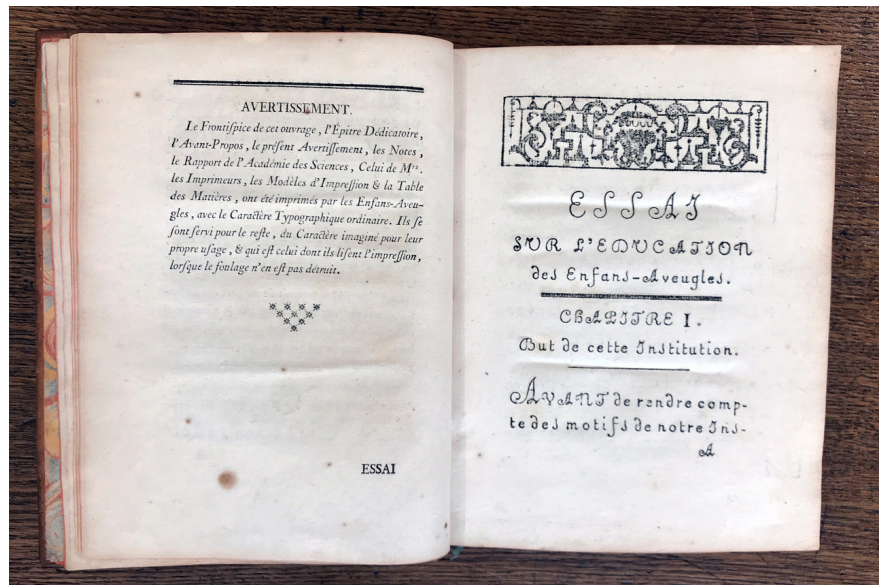 AVERTISSEMENT.
Le Frontiſpice de cet ouvrage, l'Épitre Dédicatoire,
l'Avant-Propos, le préſent Avertiſſement, les Notes,
le Rapport de l'Académie des Sciences, Celui de Mrs.
les Imprimeurs, les Modèles d'Impreſſion & la Table
des Matières, ont été imprimés par les Enfans-Aveu-
gles, avec le Caractère Typographique ordinaire. Ils ſe
ſont ſervi pour le reſte, du Caractère imaginé pour leur
propre uſage, & qui eſt celui dont ils liſent l'impreſſion,
lorſque le foulage n'en eſt pas détruit.
ESSAI
ESSAI
SUR L'EDUCATION
des Enfans-Aveugles.
CHAPITRE I.
But de cette Institution.
AVANT de rendre comp-
te des motifs de notre Ins-
A